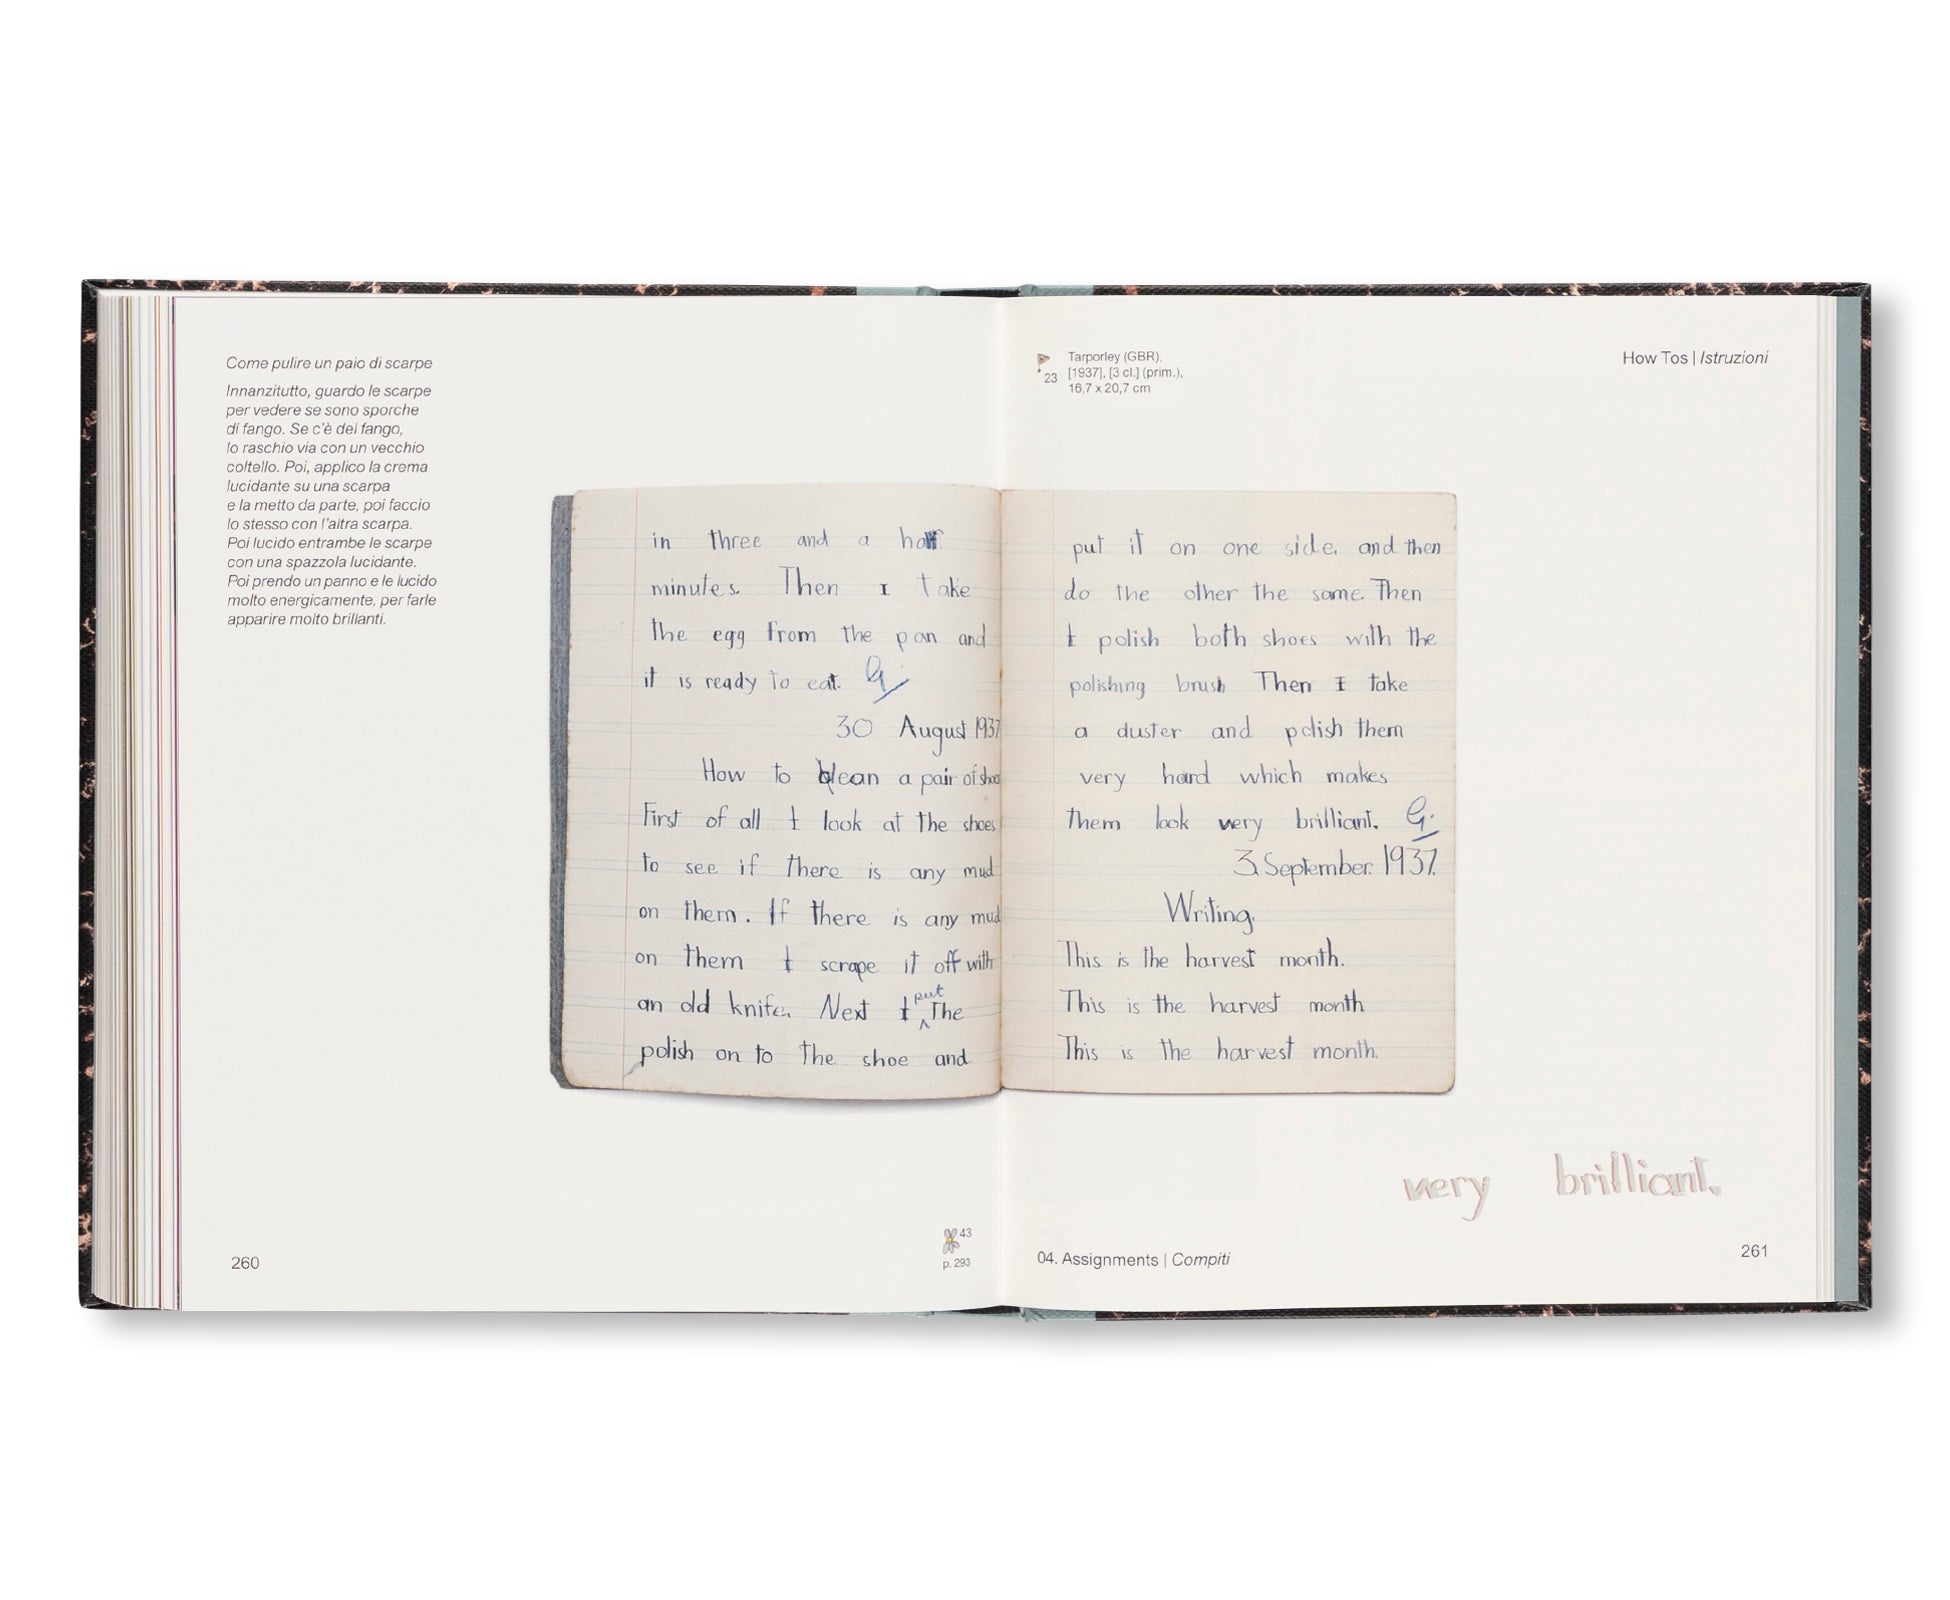 Come pulire un paio di scarpe
Innanzitutto, guardo le scarpe
per vedere se sono sporche
di fango. Se c'è del fango,
lo raschio via con un vecchio
coltello. Poi, applico la crema
lucidante su una scarpa
e la metto da parte, poi faccio
lo stesso con l'altra scarpa.
Poi lucido entrambe le scarpe
con una spazzola lucidante.
Poi prendo un panno e le lucido
molto energicamente, per farle
apparire molto brillanti.
in three and a half
minutes. Then I take
the egg from the pan and
it is ready to eat. G.
30 August 1937
How to clean a pair of shoes
First of all I look at the shoes
to see if there is any mud
on them. If there is any mud
on them I scrape it off with
an old knife. Next I put the
polish on to the shoe and
43
p. 293
260
23
Tarporley (GBR),
[1937], [3 cl.] (prim.),
16,7 x 20,7 cm
How Tos | Istruzioni
put it on one side. and then
do the other the same. Then
I polish both shoes with the
polishing brush Then I take
a duster and polish them
very hard which makes
them look very brilliant. G.
3. September. 1937.
Writing.
This is the harvest month.
This is the harvest month
This is the harvest month.
very brilliant.
04. Assignments | Compiti
261